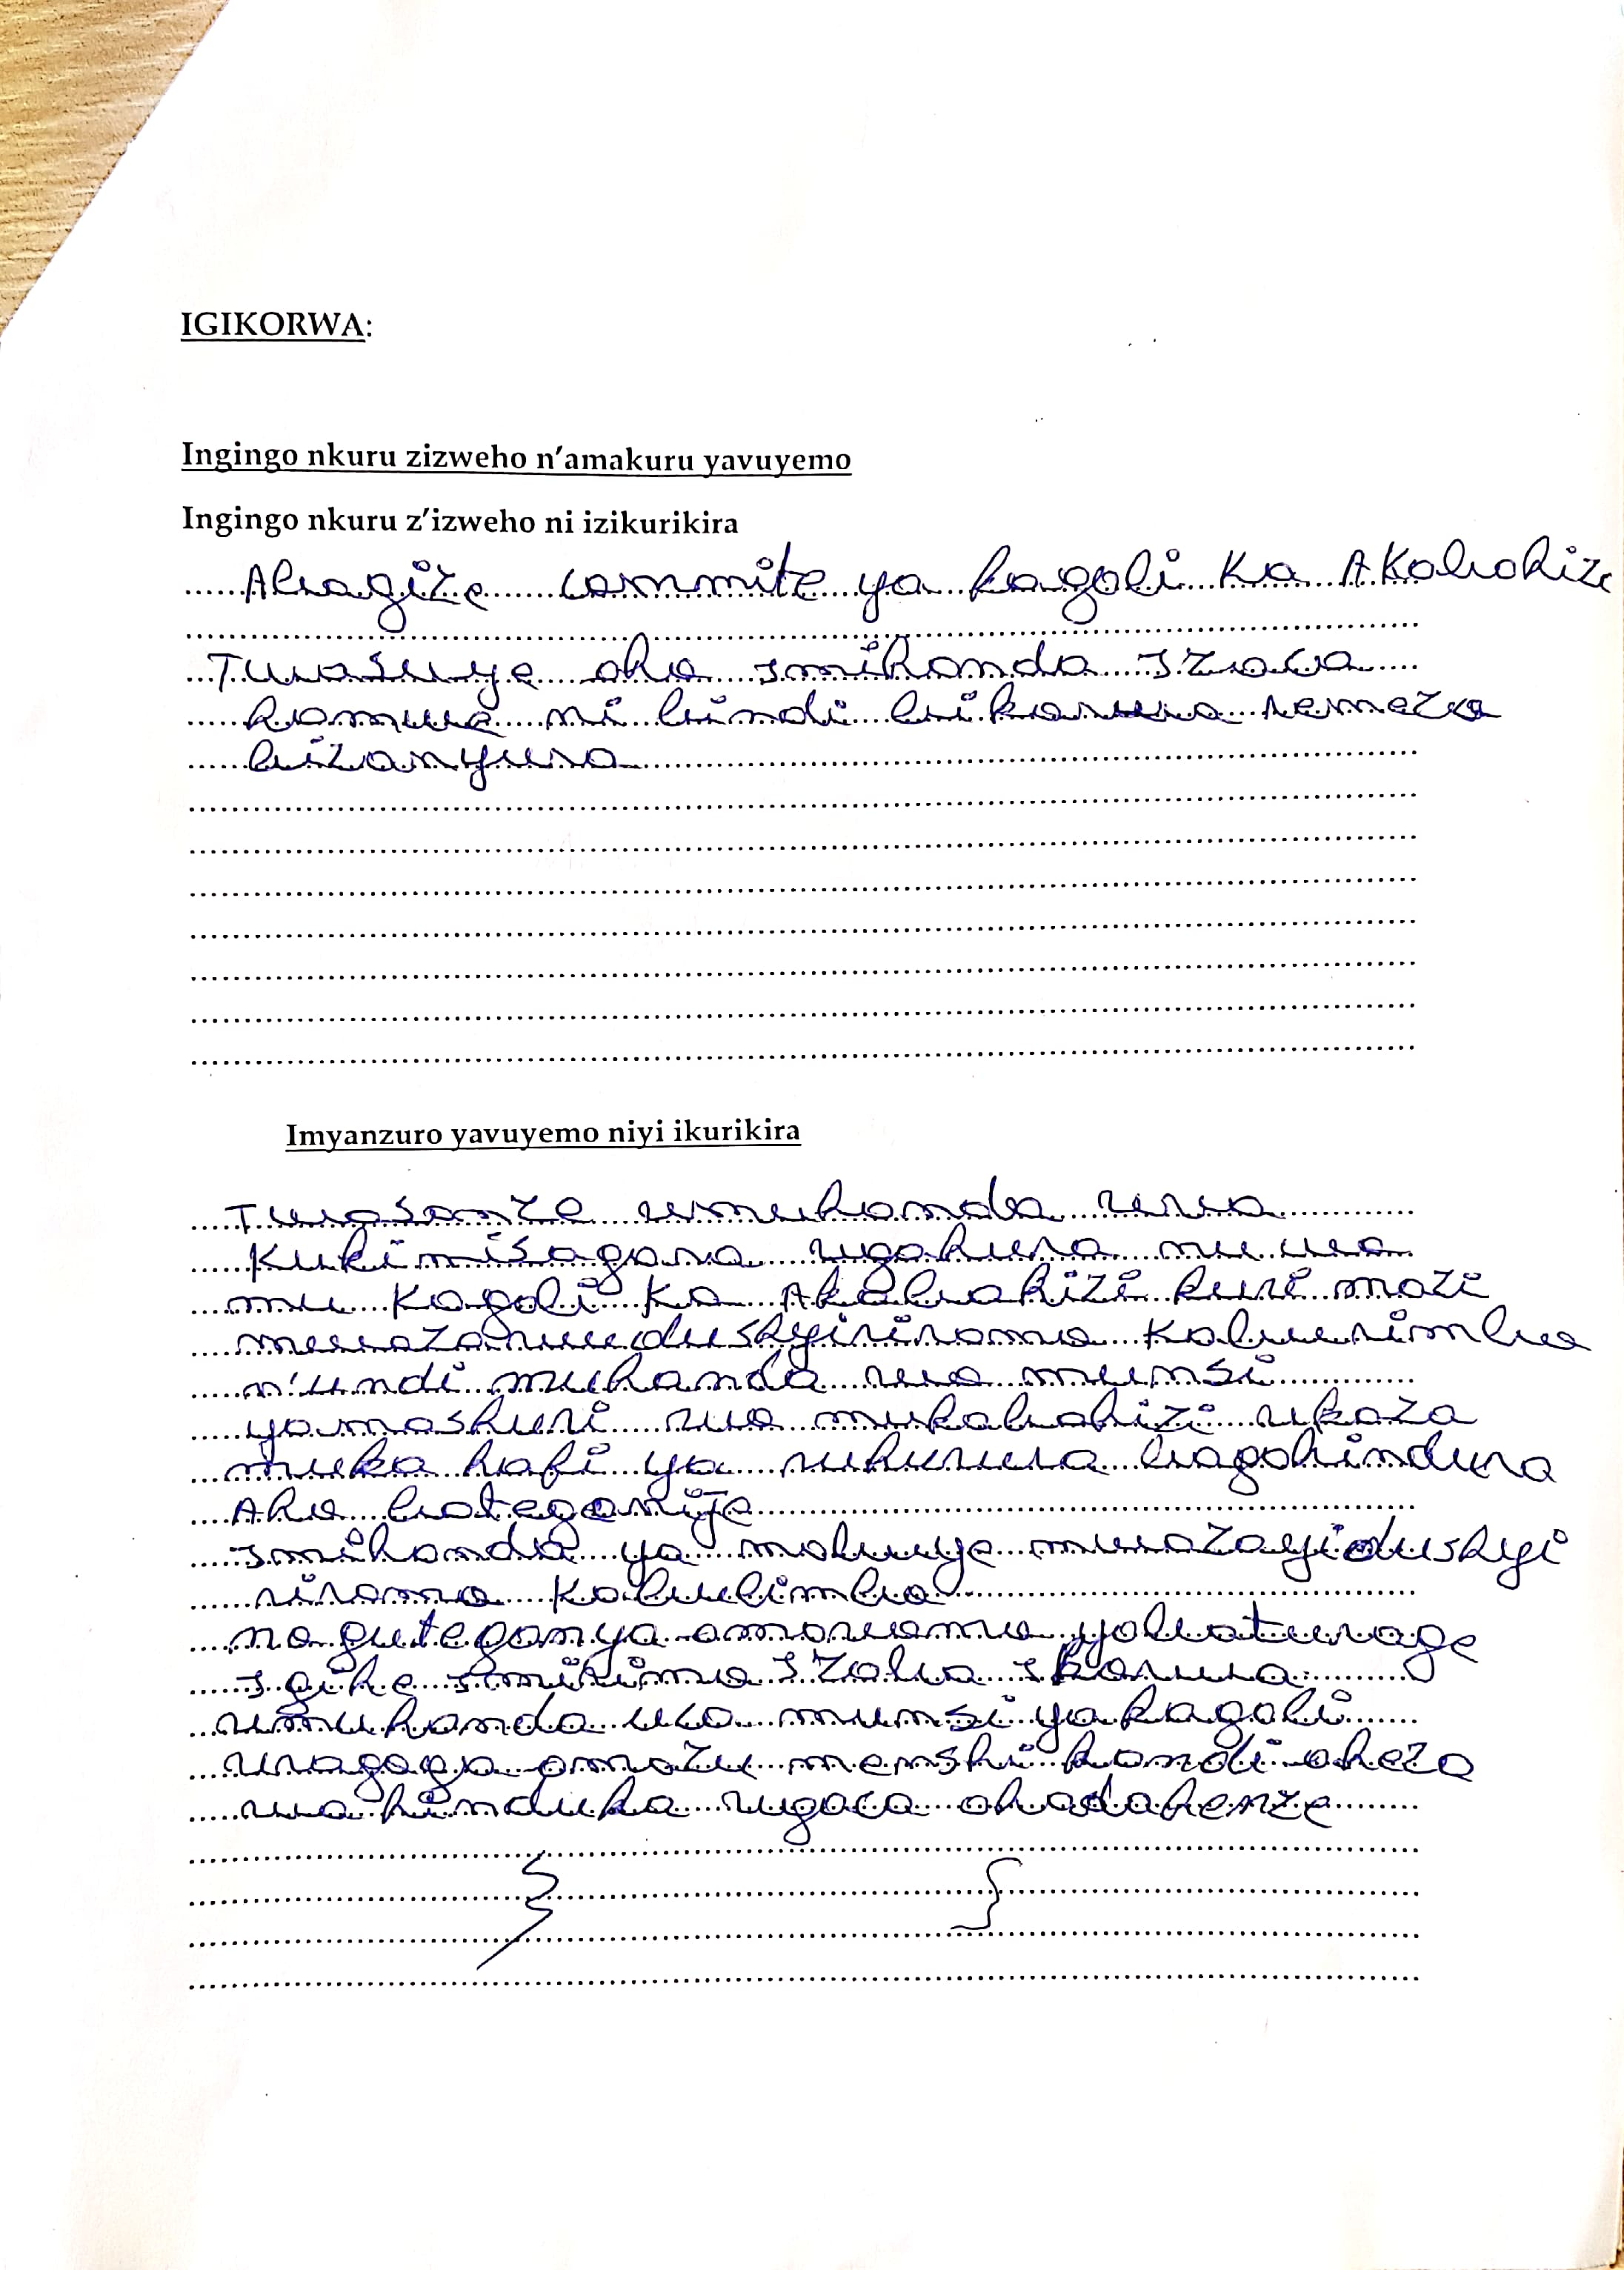 IGIKORWA:
Ingingo nkuru zizweho n'amakuru yavuyemo
Ingingo nkuru z'izweho ni izikurikira
Abagize committe ya kagobi Ka AKabahize
Twasuye aho imihanda izaca
hamwe ni bindi bikorwa remezo
bizanyura
Imyanzuro yavuyemo niyi ikurikira
Twasanze umuhanda uva
Kukimisagara ugahura nu wo
mu Kagobi Ka Akabahizi kuri mazi
muwazanwudushyiriramo Kaburimbo
n'undi muhanda wo munsi
y'amashuri wo mukabahizi ukaza
muka hafi ya ruhurura bagahindura
Aho bateganije
imihanda ya mabuye muwazayidushyi
riramo Kabulimbo
no guteganya amaruamu yabaturage
igihe imirimo izaba ikorwa
umuhanda wo munsi ya kagobi
uragoga amazu menshi kandi aheza
wahinduka ugaca ahadahenze